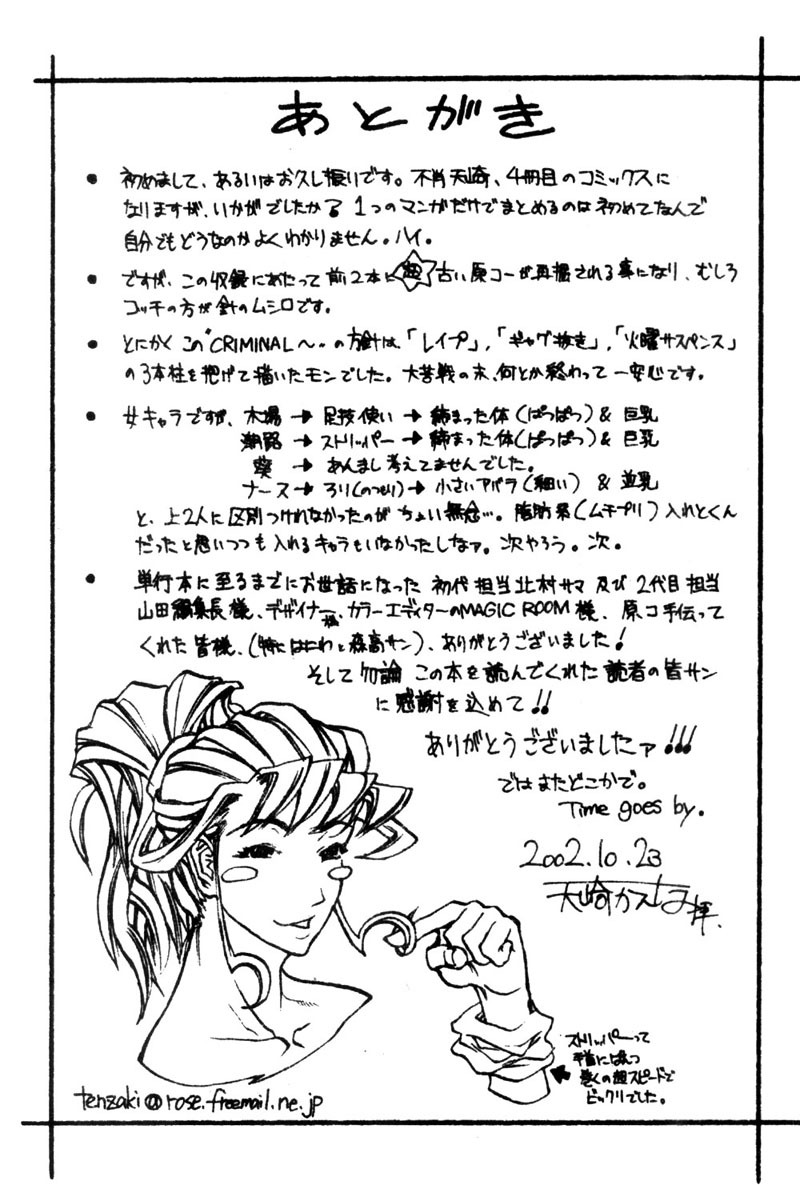 あとがき
・初めまして、あるいはお久し振りです。不肖天崎、4冊目のコミックスに
なりますが、いかがでしたか？1つのマンガだけでまとめるのは初めてなんで
自分でもどうなのかよくわかりません。ハイ。
・ですが、この収録にあたって前2本に超古い原コーが再掲される事になり、むしろ
コッチの方が針のムシロです。
・とにかくこの"CRIMINAL〜"の方針は、「レイプ」,「ギャグ抜き」,「火曜サスペンス」
の3本柱を掲げて描いたモンでした。大苦戦の末、何とか終わって一安心です。
・女キャラですが、木場→足技使い→締まった体(ぱっぱつ)&巨乳
潮路→ストリッパー→締まった体(ぱっぱつ)&巨乳
葵→あんまし考えてませんでした。
ナース→ろり(のつもり)→小さいアバラ(細い)&並乳
と、上2人に区別つけれなかったのがちょい無念…。脂肪系(ムチプリ)入れとくん
だったと思いつつも入れるキャラもいなかったしなァ。次やろう。次。
・単行本に至るまでにお世話になった初代担当北村サマ及び2代目担当
山田編集長様、デザイナー様、カラーエディターのMAGIC ROOM様、原コ手伝って
くれた皆様、(特にはにわと森高サン)、ありがとうございました！
そして勿論この本を読んでくれた読者の皆サン
に感謝を込めて!!
ありがとうございましたァ!!!
ではまたどこかで。
Time goes by.
2002.10.23
天崎かんな拝.
ストリッパーって
手首にぱんつ
巻くの超スピードで
ビックリでした。
tenzaki@rose.freemail.ne.jp